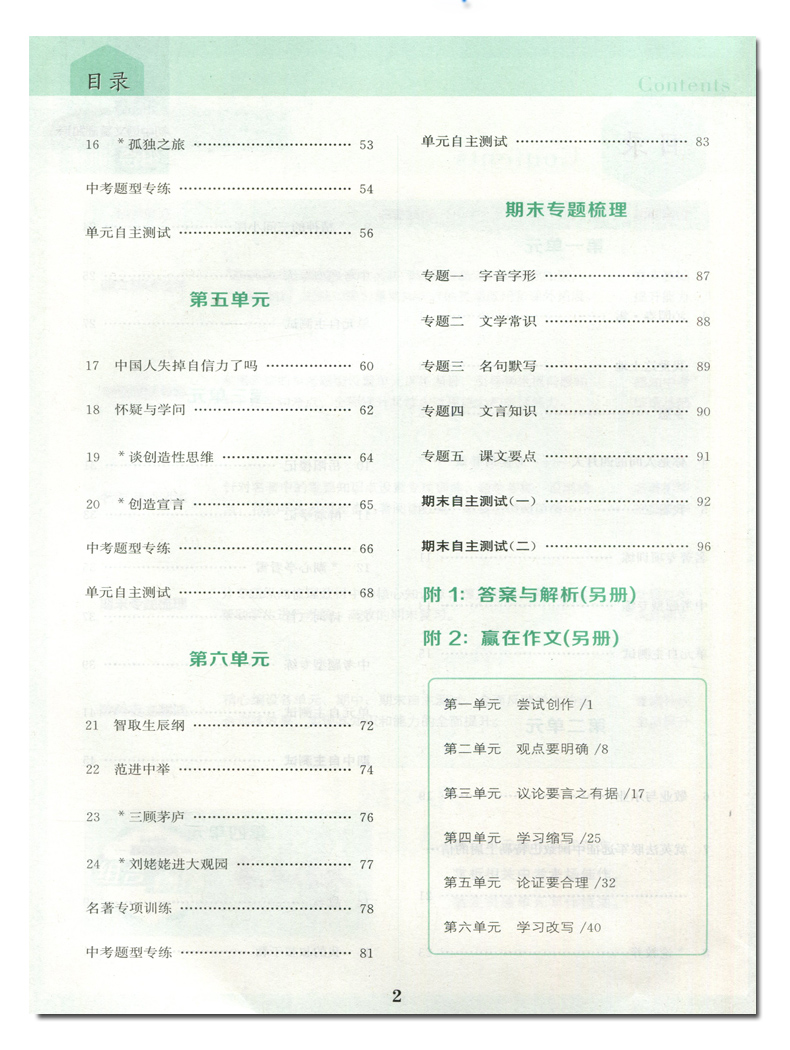 目录
Contents
16 *孤独之旅 …………………………… 53
中考题型专练 …………………………… 54
单元自主测试 …………………………… 56
第五单元
17 中国人失掉自信力了吗 ……………… 60
18 怀疑与学问 …………………………… 62
19 *谈创造性思维 ……………………… 64
20 *创造宣言 …………………………… 65
中考题型专练 …………………………… 66
单元自主测试 …………………………… 68
第六单元
21 智取生辰纲 …………………………… 72
22 范进中举 ……………………………… 74
23 *三顾茅庐 …………………………… 76
24 *刘姥姥进大观园 …………………… 77
名著专项训练 …………………………… 78
中考题型专练 …………………………… 81
单元自主测试 …………………………… 83
期末专题梳理
专题一 字音字形 ……………………… 87
专题二 文学常识 ……………………… 88
专题三 名句默写 ……………………… 89
专题四 文言知识 ……………………… 90
专题五 课文要点 ……………………… 91
期末自主测试(一) ……………………… 92
期末自主测试(二) ……………………… 96
附1：答案与解析(另册)
附2：赢在作文(另册)
第一单元 尝试创作 /1
第二单元 观点要明确 /8
第三单元 议论要言之有据 /17
第四单元 学习缩写 /25
第五单元 论证要合理 /32
第六单元 学习改写 /40
2